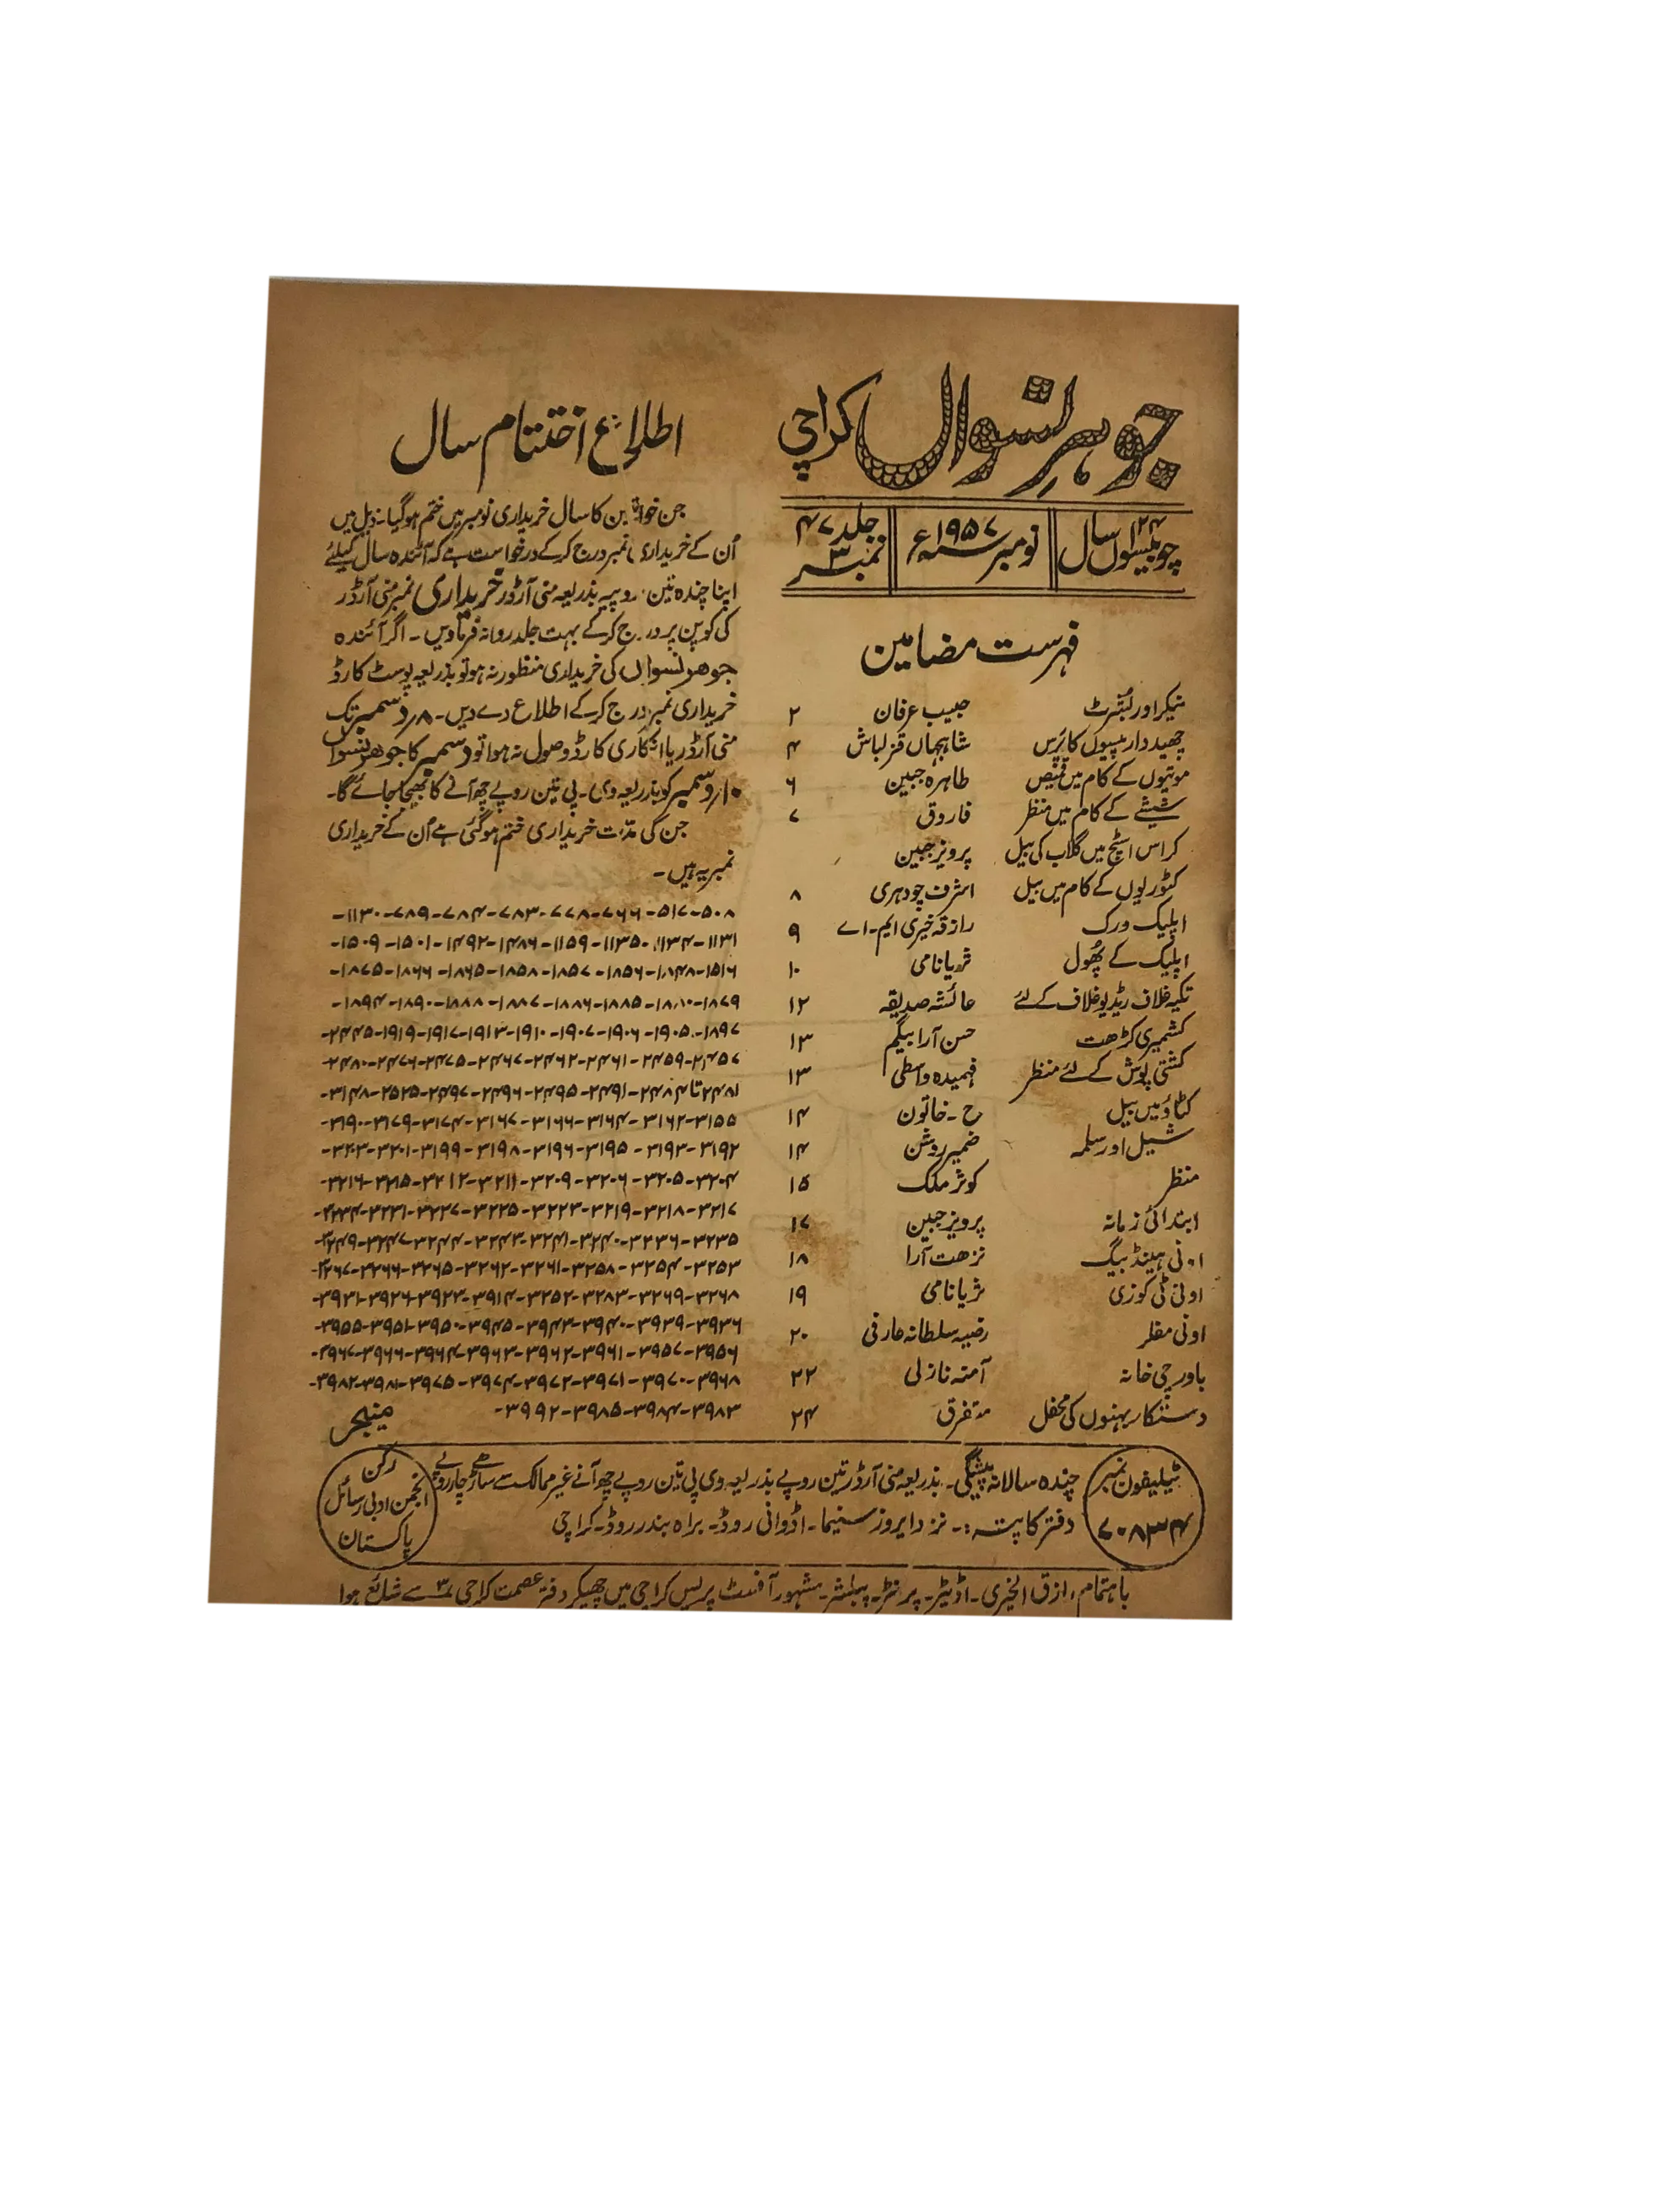 جوہرِ نسواں کراچی
۲۴ چوبیسواں سال
نومبر ۱۹۵۷ء
جلد ۴۷ نمبر ۳
فہرست مضامین
نیکر اور بُشرٹ حبیب عرفان ۲
چھید دار سیپوں کا پَرس شاہجہاں قزلباش ۴
موتیوں کے کام میں قمیص طاہرہ جبین ۶
شیشے کے کام میں منظر فاروق ۷
کراس اسٹیچ میں گلاب کی بیل پرویز جبین
کٹوریوں کے کام میں بیل اشرف چودہری ۸
اپلیک ورک رازقہ خیری ایم۔اے ۹
اپلیک کے پھُول ثریا نامی ۱۰
تکیہ غلاف ریڈیو غلاف کے لئے عائشہ صدیقہ ۱۲
کشمیری کڑھت حسن آرا بیگم ۱۳
کشتی پوش کے لئے منظر فہمیدہ واسطی ۱۳
کٹاؤ میں بیل ح۔خاتون ۱۴
شیل اور سلمہ ضمیر روشن ۱۴
منظر کوثر ملک ۱۵
ابتدائی زمانہ پرویز جبین ۱۷
اونی ہینڈ بیگ نزھت آرا ۱۸
اونی ٹی کوزی ثریا نامی ۱۹
اونی مفلر رضیہ سلطانہ عارفی ۲۰
باورچی خانہ آمنہ نازلی ۲۲
دستکار بہنوں کی محفل متفرق ۲۴
اطلاع اختتام سال
جن خواتین کا سال خریداری نومبر میں ختم ہوگیا۔ ذیل میں
اُن کے خریداری نمبر درج کرکے درخواست ہے کہ آئندہ سال کیلئے
اپنا چندہ تین روپیہ بذریعہ منی آرڈر خریداری نمبر منی آرڈر
کی کوپن پر درج کرکے بہت جلد روانہ فرمادیں۔ اگر آئندہ
جوھر نسواں کی خریداری منظور نہ ہو تو بذریعہ پوسٹ کارڈ
خریداری نمبر درج کرکے اطلاع دے دیں۔ ۸ر دسمبر تک
منی آرڈر یا انکاری کارڈ وصول نہ ہوا تو دسمبر کا جوھر نسواں
۱۰ر دسمبر کو بذریعہ وی۔پی تین روپے چھ آنے کا بھیجا جائے گا۔
جن کی مدّت خریداری ختم ہوگئی ہے اُن کے خریداری
نمبر یہ ہیں۔
۵۰۸-۵۱۷-۷۶۶-۷۷۸-۷۸۳-۷۸۴-۷۸۹-۱۱۳۰-
۱۱۳۱-۱۱۳۴-۱۱۳۵-۱۱۵۹-۱۴۸۶-۱۴۹۲-۱۵۰۱-۱۵۰۹-
۱۵۱۶-۱۸۴۸-۱۸۵۶-۱۸۵۷-۱۸۵۸-۱۸۶۵-۱۸۶۶-۱۸۷۵-
۱۸۷۹-۱۸۸۰-۱۸۸۵-۱۸۸۶-۱۸۸۷-۱۸۸۸-۱۸۹۰-۱۸۹۴-
۱۸۹۷-۱۹۰۵-۱۹۰۶-۱۹۰۷-۱۹۱۰-۱۹۱۳-۱۹۱۷-۱۹۱۹-۲۴۴۵-
۲۴۵۷-۲۴۵۹-۲۴۶۱-۲۴۶۲-۲۴۶۷-۲۴۷۵-۲۴۷۶-۲۴۸۰-
۲۴۸۱ تا ۲۴۸۴-۲۴۹۱-۲۴۹۵-۲۴۹۶-۲۴۹۷-۲۵۲۵-۳۱۴۸-
۳۱۵۵-۳۱۶۲-۳۱۶۴-۳۱۶۶-۳۱۶۷-۳۱۷۴-۳۱۷۹-۳۱۹۰-
۳۱۹۲-۳۱۹۳-۳۱۹۵-۳۱۹۶-۳۱۹۸-۳۱۹۹-۳۲۰۱-۳۲۰۳-
۳۲۰۴-۳۲۰۵-۳۲۰۶-۳۲۰۹-۳۲۱۱-۳۲۱۲-۳۲۱۵-۳۲۱۶-
۳۲۱۷-۳۲۱۸-۳۲۱۹-۳۲۲۳-۳۲۲۵-۳۲۲۷-۳۲۳۱-۳۲۳۴-
۳۲۳۵-۳۲۳۶-۳۲۴۰-۳۲۴۱-۳۲۴۳-۳۲۴۴-۳۲۴۷-۳۲۴۹-
۳۲۵۳-۳۲۵۴-۳۲۵۸-۳۲۶۱-۳۲۶۲-۳۲۶۵-۳۲۶۶-۳۲۶۷-
۳۲۶۸-۳۲۶۹-۳۲۸۳-۳۲۵۲-۳۹۱۴-۳۹۲۳-۳۹۲۶-۳۹۳۱-
۳۹۳۶-۳۹۳۹-۳۹۴۰-۳۹۴۳-۳۹۴۵-۳۹۵۰-۳۹۵۱-۳۹۵۵-
۳۹۵۶-۳۹۵۷-۳۹۶۱-۳۹۶۲-۳۹۶۳-۳۹۶۴-۳۹۶۶-۳۹۶۷-
۳۹۶۸-۳۹۷۰-۳۹۷۱-۳۹۷۲-۳۹۷۴-۳۹۷۵-۳۹۸۱-۳۹۸۲-
۳۹۸۳-۳۹۸۴-۳۹۸۵-۳۹۹۲-
منیجر
ٹیلیفون نمبر
۷۰۸۳۴
چندہ سالانہ پیشگی۔ بذریعہ منی آرڈر تین روپے بذریعہ وی پی تین روپے چھ آنے غیر ممالک سے ساڑھے چار روپے
دفتر کا پتہ:۔ نزد ایروز سنیما۔ اڈوانی روڈ۔ براہ بندر روڈ۔ کراچی
رکن
انجمن ادبی رسائل
پاکستان
باہتمام رازق الخیری۔ اڈیٹر۔ پرنٹر۔ پبلشر۔ مشہور آفسٹ پریس کراچی میں چھپکر دفتر عصمت کراچی ۳ سے شائع ہوا